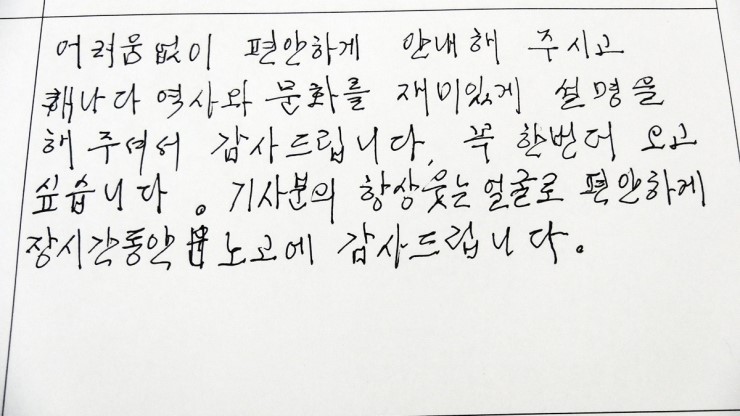 어려움없이 편안하게 안내해 주시고
캐나다 역사와 문화를 재미있게 설명을
해 주셔서 감사드립니다, 꼭 한번더 오고
싶습니다. 기사분의 항상웃는 얼굴로 편안하게
장시간동안 노고에 감사드립니다.